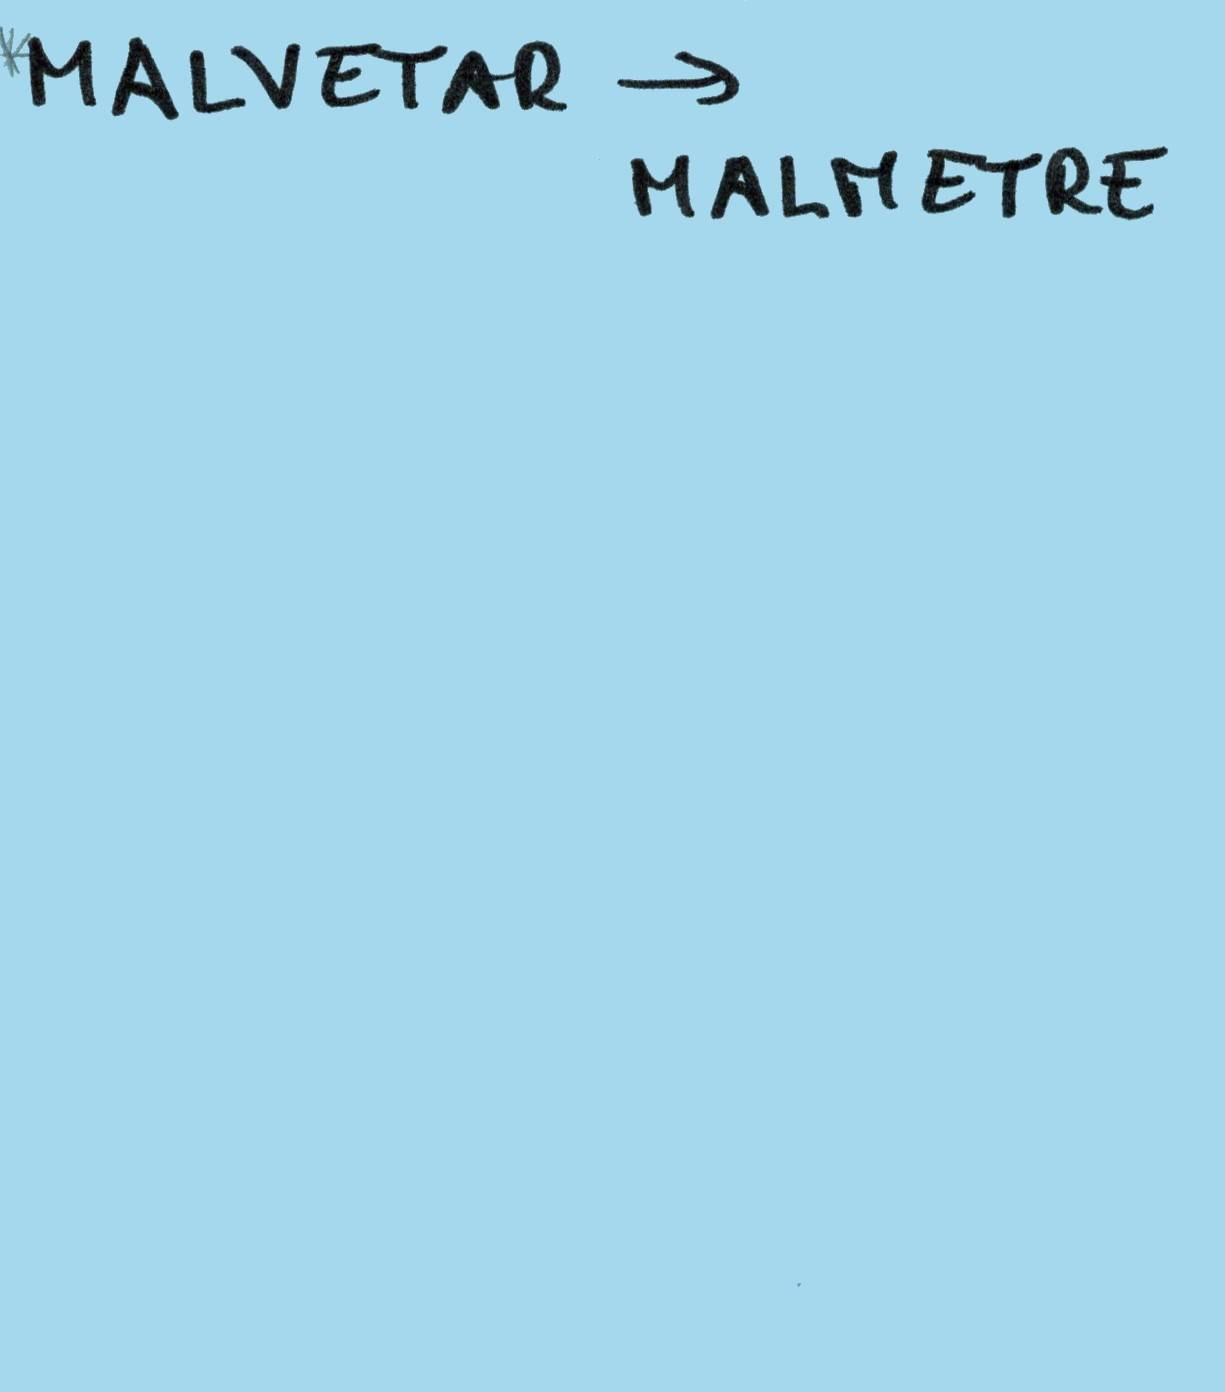 *MALVETAR →
MALMETRE